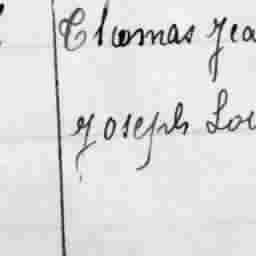 Thomas Jea
Joseph Lou